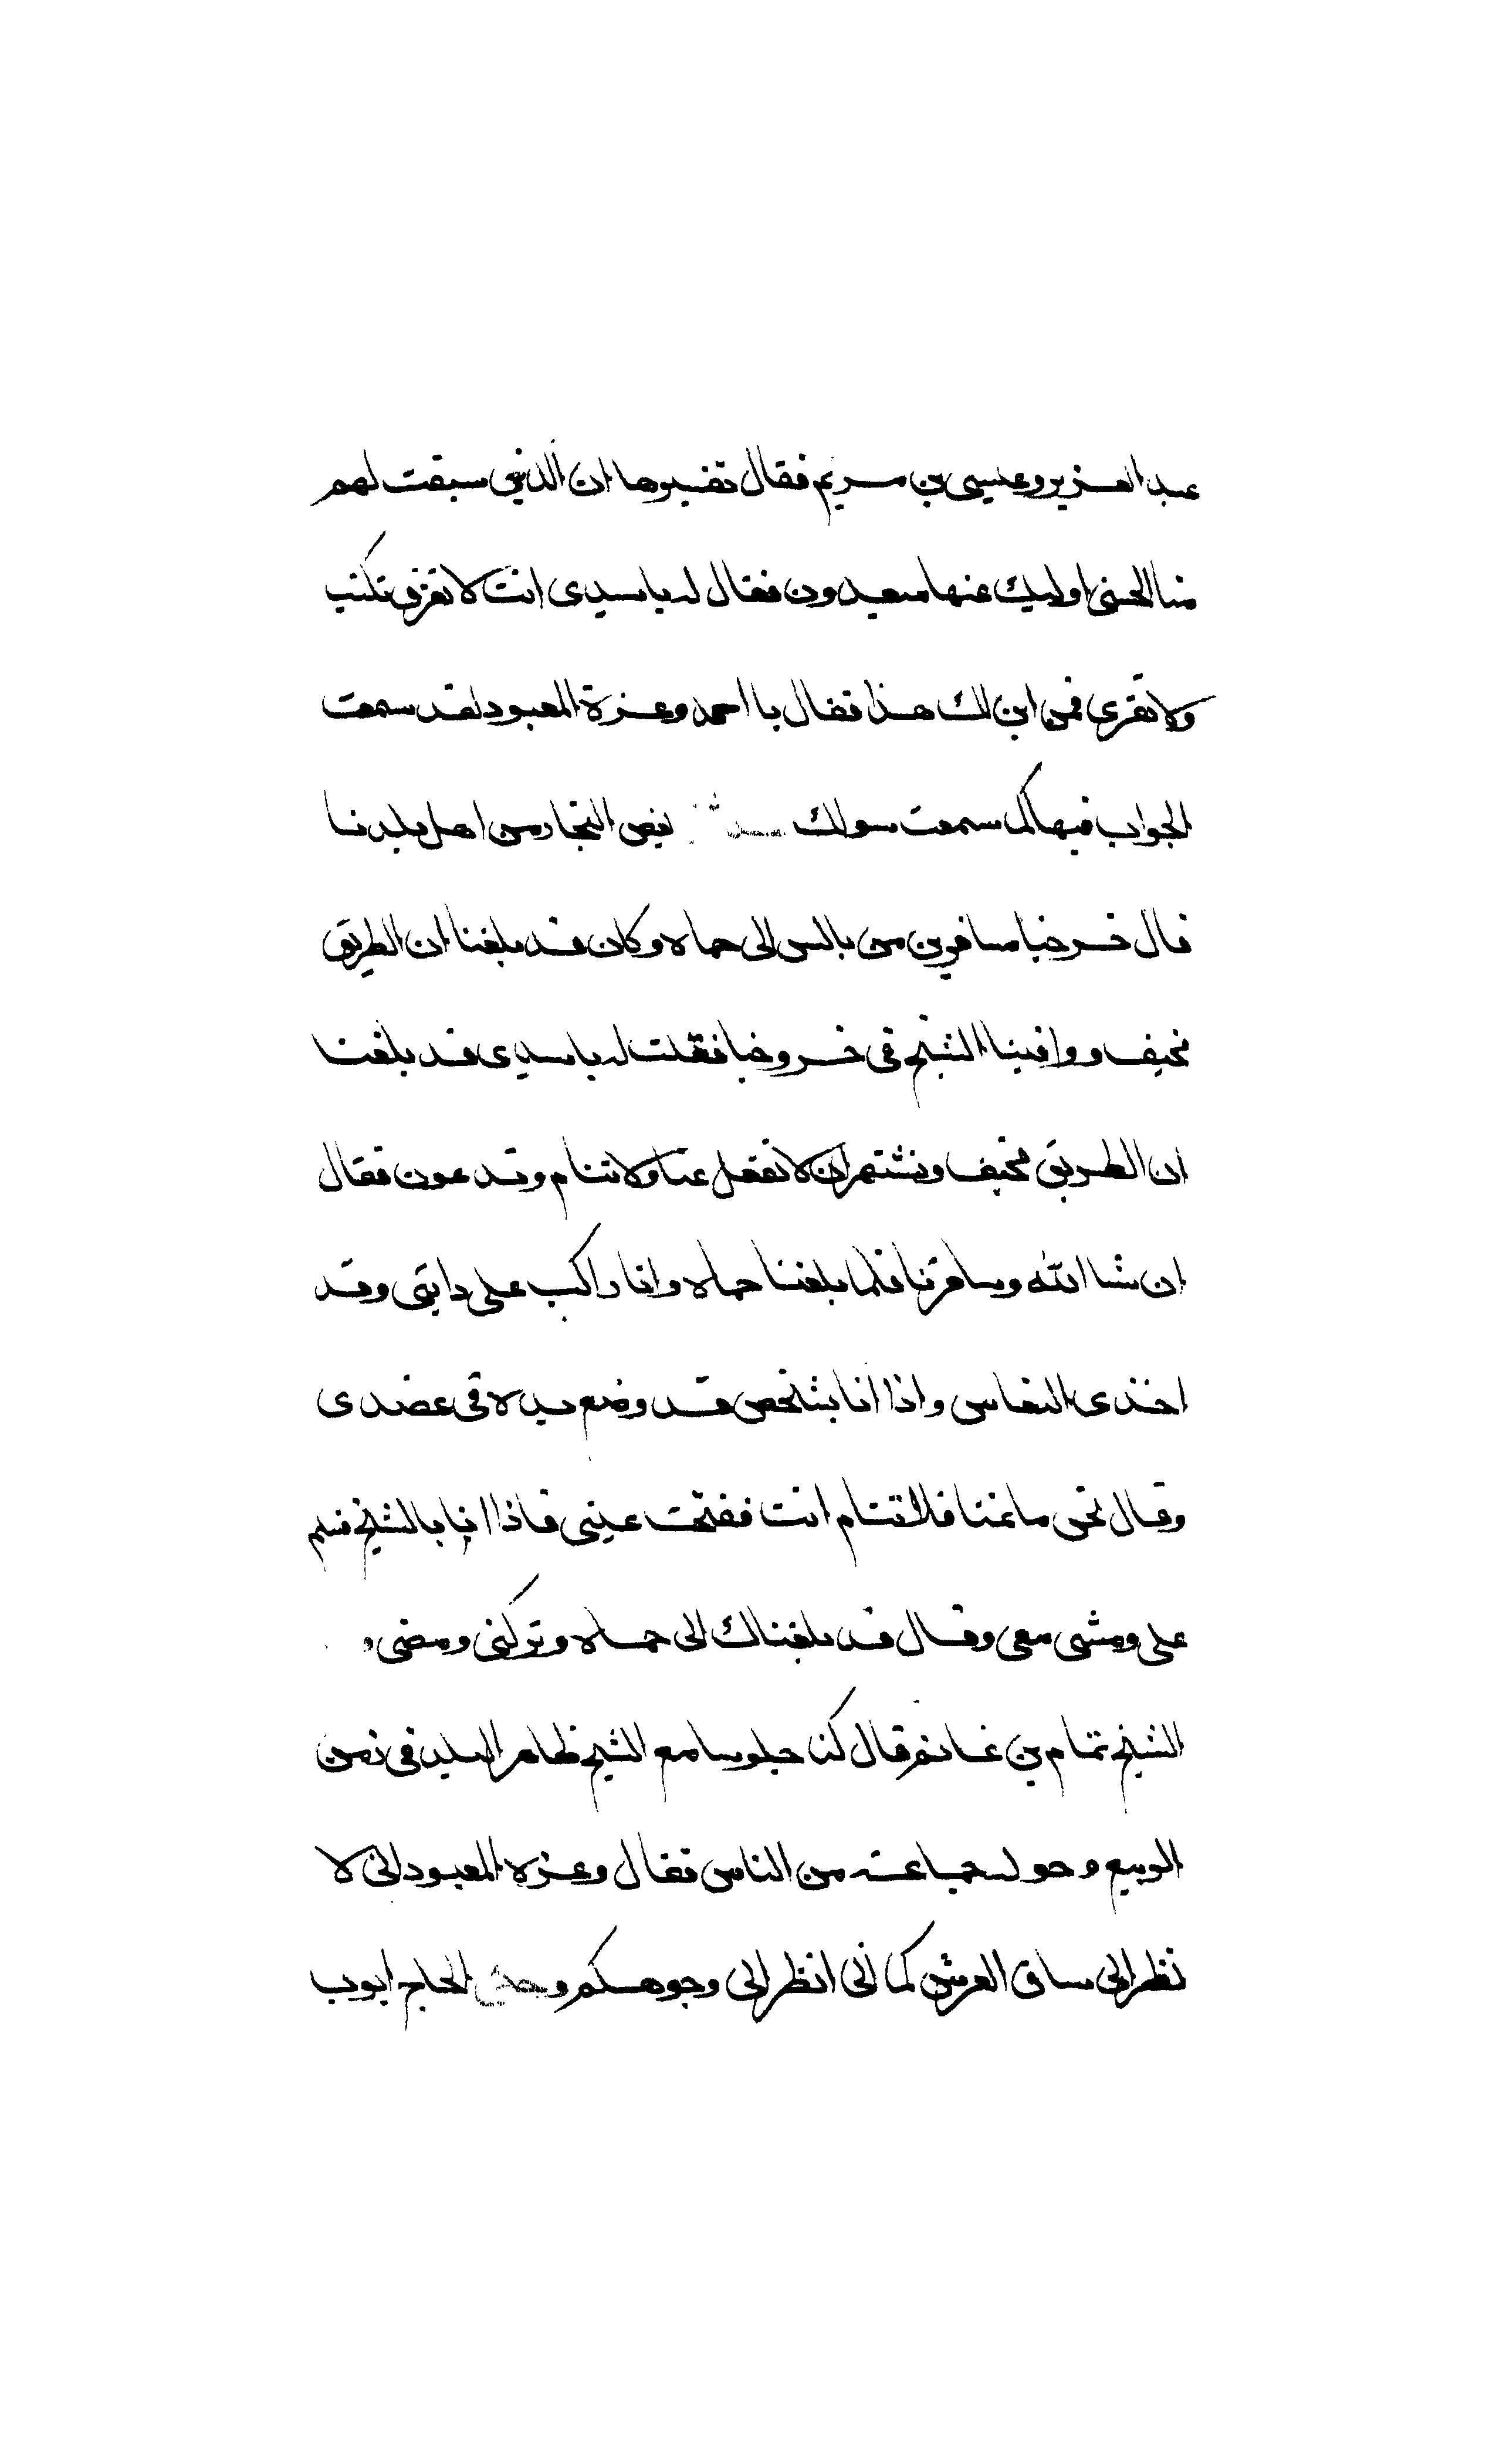 عبد العزيز وعيسى بن مريم فقال تفسيرها ان الذين سبقت لهم
منا الحسنى اوليك عنها مبعدون فقال له يا سيدى انت لا تعرف تكتب
ولا تقرى فمن اين لك هذا فقال يا احمد وعزة المعبود لقد سمعت
الجواب فيها كما سمعت سوالك بعض التجار من اهل بلدنا
قال خرجنا مسافرين من بالس الى حماه وكان قد بلغنا ان الطريق
مخيف ووافينا الشيخ فى خروجنا فقلت له يا سيدى قد بلغنا
ان الطريق مخيف ونشتهى ان لا تغفل عنا ولا تنام وتدعون فقال
ان شا الله وسافرنا فلما بلغنا حماه وانا راكب على دابتى وقد
اخذنى النعاس واذا انا بشخص قد وضع يده فى عضدى
وقال نحن ما نمنا فلا تنام انت ففتحت عينى فاذا انا بالشيخ فسلم
على ومشى معى وقال قد بلغناك الى حماه وتركنى ومضى
الشيخ تمام بن غانم قال كنا جلوسا مع الشيخ ظاهر البلد فى زمن
الربيع وحوله جماعة من الناس فقال وعزة المعبود انى لا
نظر الى ساق العرش كما انى انظر الى وجوهكم وحدثنى الحاج ايوب